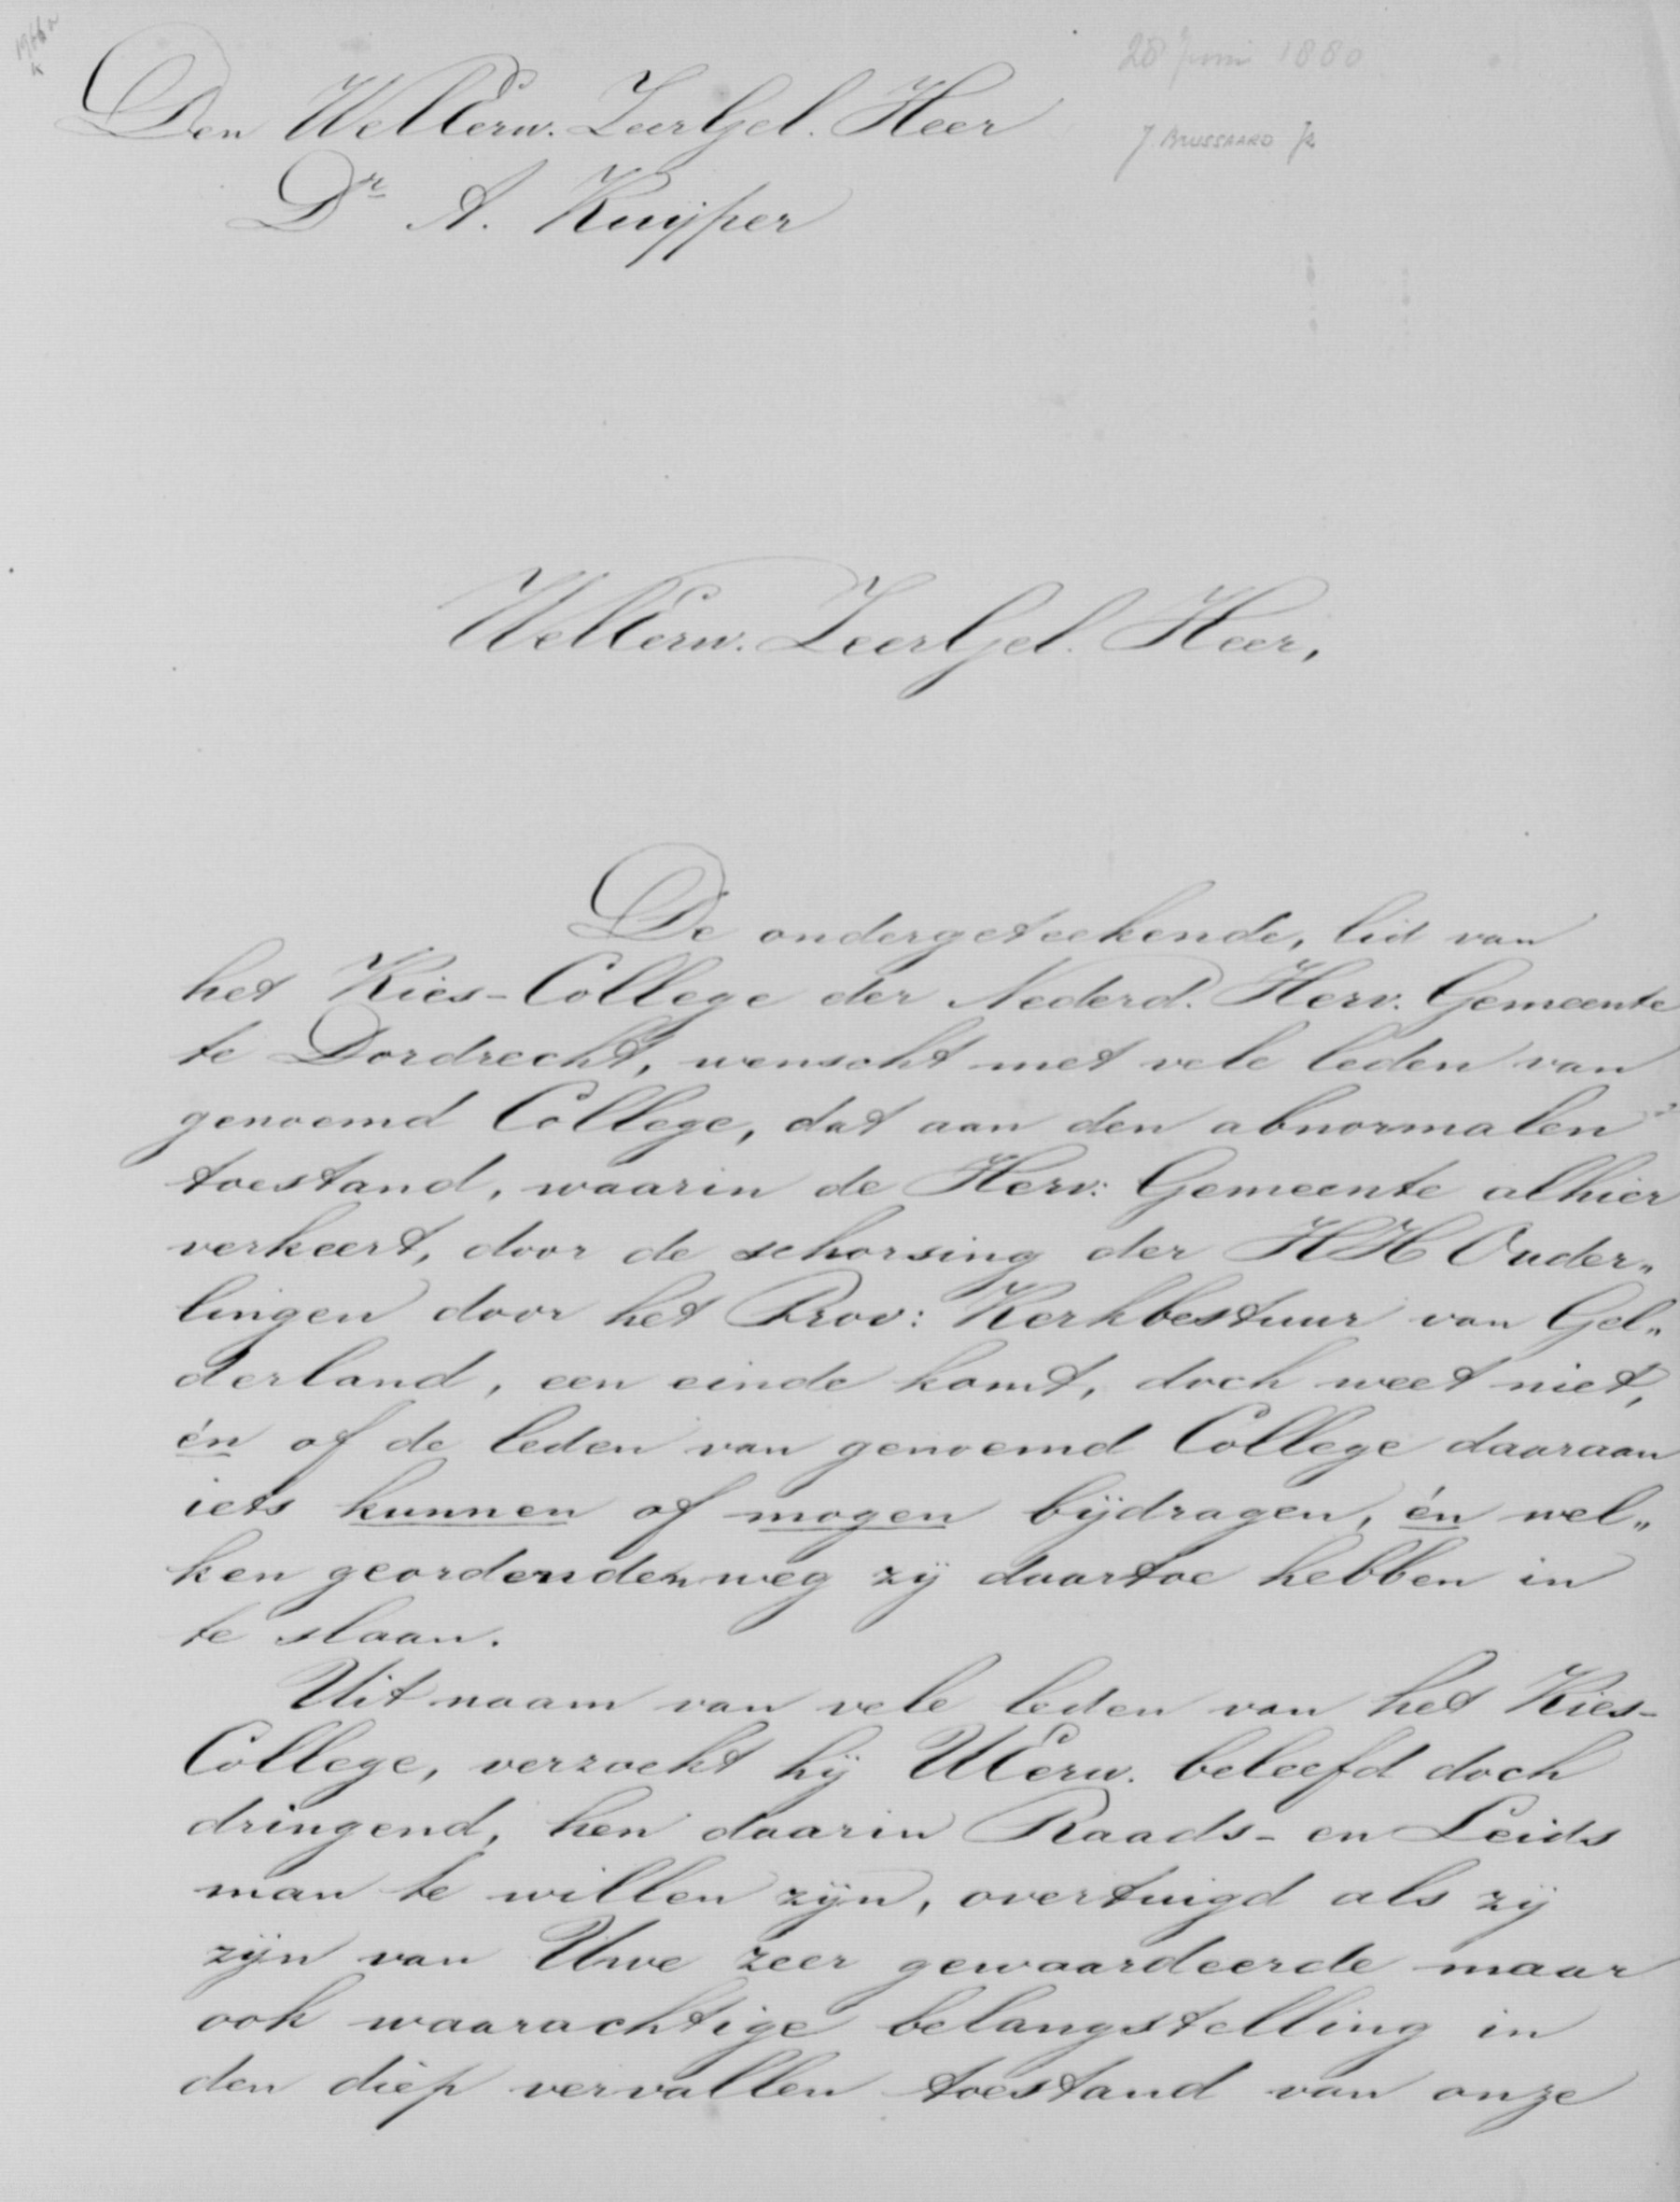 28 Juni 1880
Den WelEerw. ZeerGel. Heer
J. BRUSSAARD Jz.
Dr A. Kuijper
WelEerw. ZeerGel. Heer,
De ondergeteekende, lid van
het Kies-College der Nederd. Herv. Gemeente
te Dordrecht, wenscht met vele leden van
genoemd College, dat aan den abnormalen
toestand, waarin de Herv: Gemeente alhier
verkeert, door de schorsing der HH Ouder„
lingen door het Prov: Kerkbestuur van Gel„
derland, een einde komt, doch weet niet,
én of de leden van genoemd College daaraan
iets kunnen of mogen bijdragen, én wel„
ken geordenden weg zij daartoe hebben in
te slaan.
Uit naam van vele leden van het Kies-
College, verzoekt hij UEerw. beleefd doch
dringend, hen daarin Raads- en Leids
man te willen zijn, overtuigd als zij
zijn van Uwe zeer gewaardeerde maar
ook waarachtige belangstelling in
den diep vervallen toestand van onze